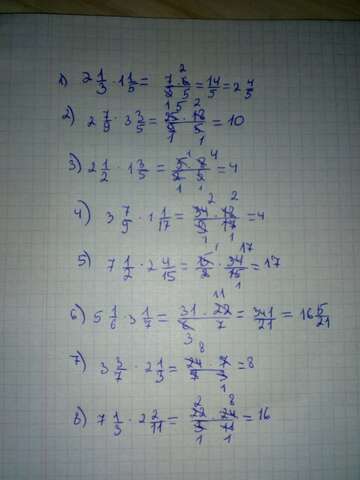 1) 2 1/3 · 1 1/5 = 7·6/3·5 = 14/5 = 2 4/5
2) 2 7/9 · 3 3/5 = 25·18/9·5 = 10
3) 2 1/2 · 1 3/5 = 5·8/2·5 = 4
4) 3 7/9 · 1 1/17 = 34·18/9·17 = 4
5) 7 1/2 · 2 4/15 = 15/2 · 34/15 = 17
6) 5 1/6 · 3 1/7 = 31·22/6·7 = 341/21 = 16 5/21
7) 3 3/7 · 2 1/3 = 24·7/7·3 = 8
8) 7 1/3 · 2 2/11 = 22·24/3·11 = 16